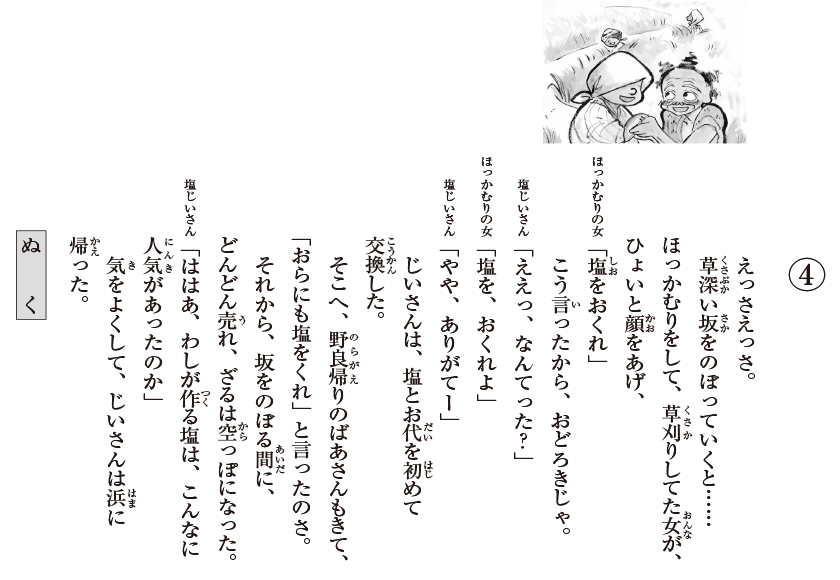 ④
えっさえっさ。
草深い坂をのぼっていくと……
ほっかむりをして、草刈りしてた女が、
ひょいと顔をあげ、
ほっかむりの女「塩をおくれ」
こう言ったから、おどろきじゃ。
塩じいさん「ええっ、なんてった？」
ほっかむりの女「塩を、おくれよ」
塩じいさん「やや、ありがてー」
じいさんは、塩とお代を初めて
交換した。
そこへ、野良帰りのばあさんもきて、
「おらにも塩をくれ」と言ったのさ。
それから、坂をのぼる間に、
どんどん売れ、ざるは空っぽになった。
塩じいさん「ははあ、わしが作る塩は、こんなに
人気があったのか」
気をよくして、じいさんは浜に
帰った。
ぬく